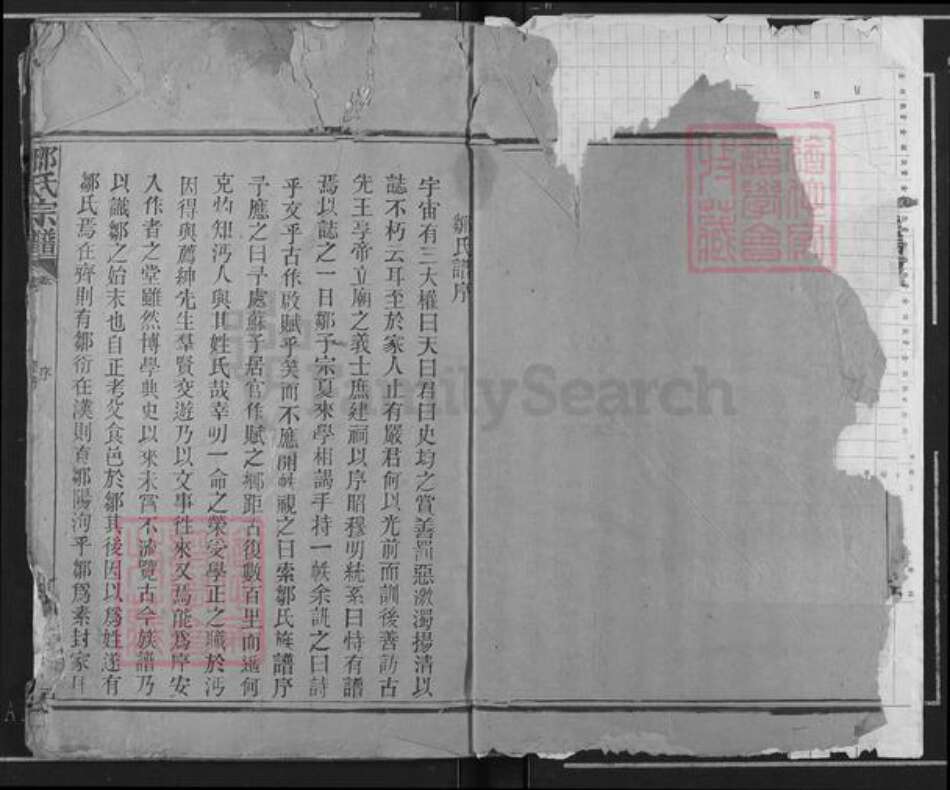 鄒氏譜序
宇宙有三大權曰天曰君曰史均之賞善罰惡激濁揚清以
誌不朽云耳至於家人止有嚴君何以光前而訓後善訪古
先王享帝立廟之義士庶建祠以序昭穆明統系曰特有譜
焉以誌之一日鄒子宗夏來學相謁手持一帙余訊之曰詩
乎文乎古作歟賦乎笑而不應開帙視之曰索鄒氏族譜序
予應之曰予處蘇子居官作賦之鄉距古復數百里而遙何
克灼知沔人與其姓氏哉幸明一命之榮受學正之職於沔
因得與薦紳先生羣賢交遊乃以文事往來又焉能爲序安
入作者之堂雖然博學典史以來未嘗不流覽古今族譜乃
以識鄒之始末也自正考父食邑於鄒其後因以爲姓遂有
鄒氏焉在齊則有鄒衍在漢則有鄒陽洵乎鄒爲素封家
鄒氏宗譜
序
FamilySearch